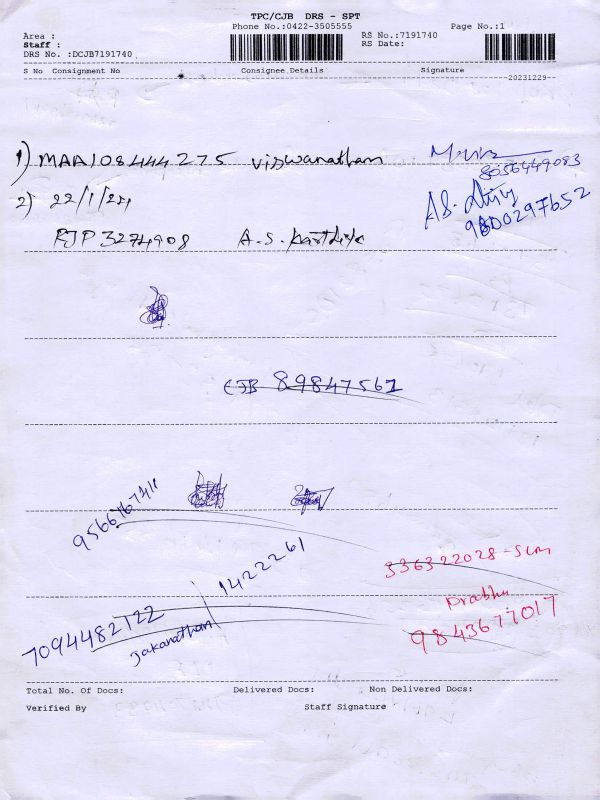 TPC/CJB DRS - SPT
Phone No.:0422-3505555 Page No.:1
Area :
Staff :
DRS No. :DCJB7191740
RS No.:7191740
RS Date:
S No Consignment No Consignee Details Signature
20231229
1) MAA108444275 Viswanathan
8056449083
2) 22/1/24
A.S.
9800297652
PJP 3274908 A.S. Karthik
CJB 89847561
9566767411
1422261
336322028-SLM
Prabhu
9843677017
7094482122
Jakanathan
Total No. Of Docs: Delivered Docs: Non Delivered Docs:
Verified By Staff Signature